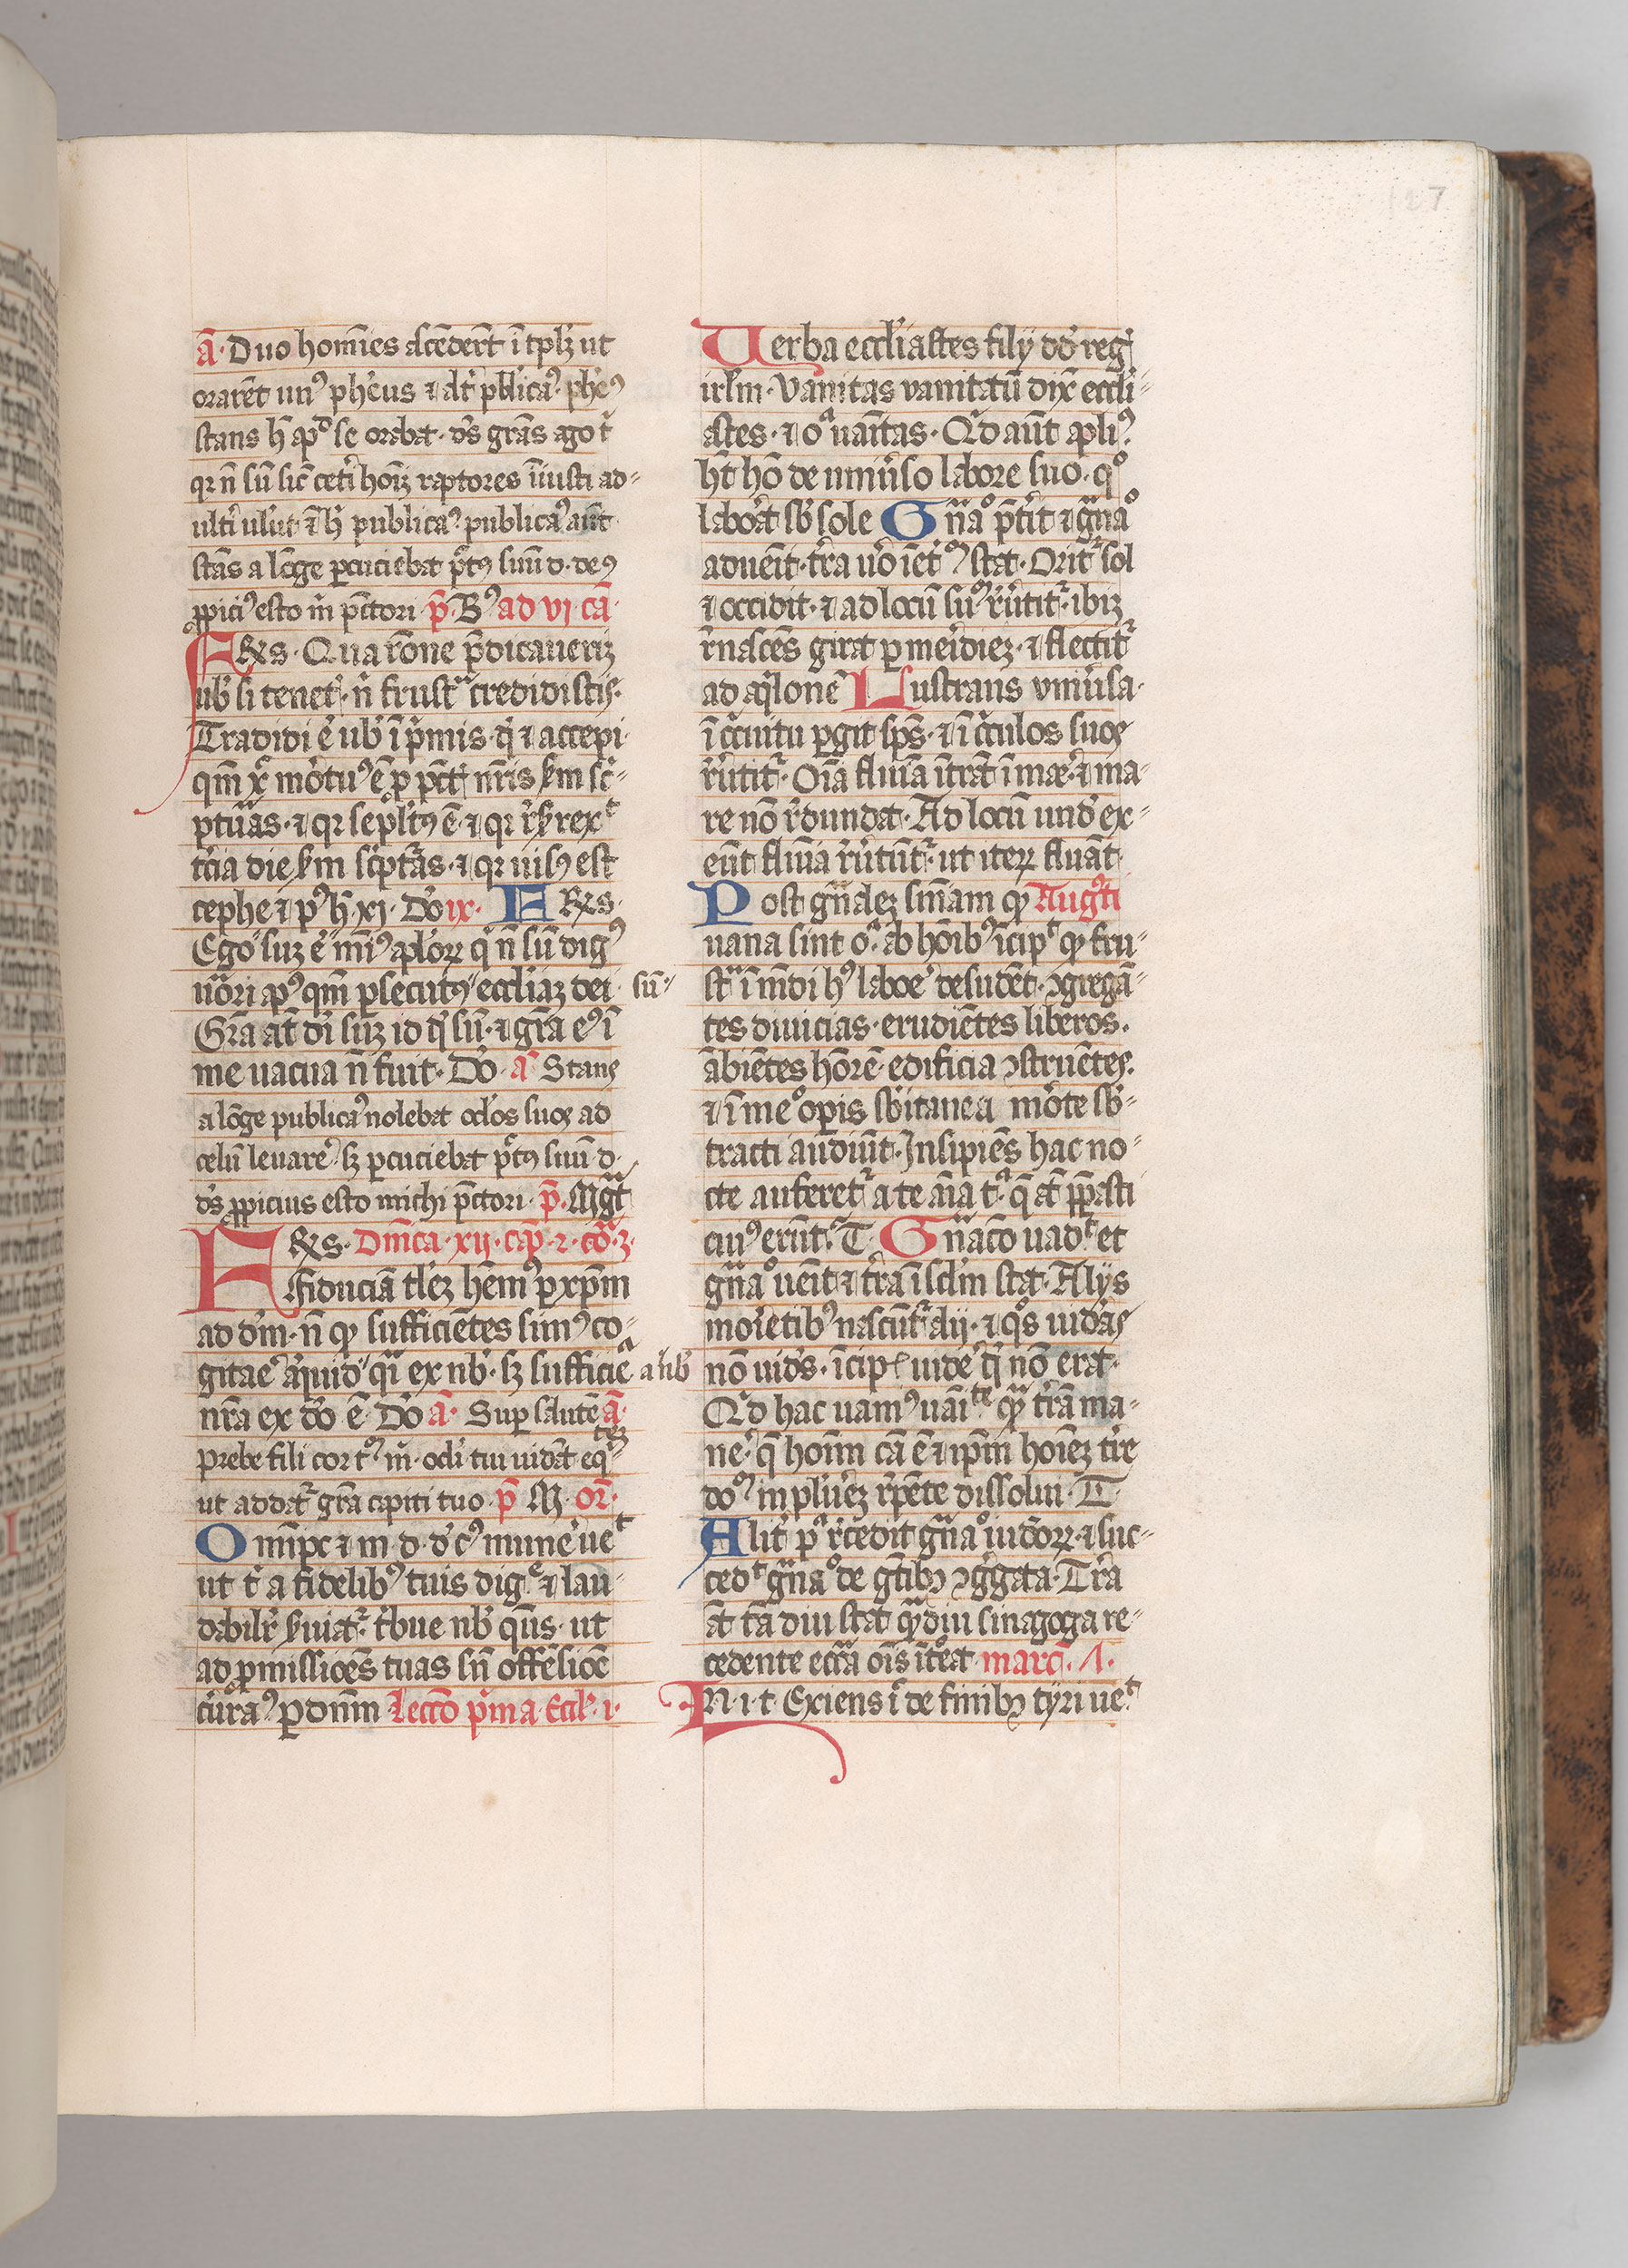 127
ā· Duo homīes ascēdert̄ ī tplꝫ ut
orarēt unꝰ phẻus ⁊ alt̓ pblicaꝰ· phẻꝰ
stans h̄ apͩ se orabat· ds̓ grās ago t̓
qꝛ n̄ sū sic̄ cet̓i hoīꝫ raptores īiusti ad-
ult̓i ul̓ut ēh̓ publicaꝰ publicaꝰ aūt
stās a lōge ꝑcuciebat pc̓tꝰ suū d· deꝰ
ꝓpiciꝰ esto m̓ pc̄tori· p̄· Bꝰ ad vi cā·
FR̄es· Qua rōne p̄dicaueriꝫ
ub̓ si tenet̓· n̓ frustᵃ credidistis·
Tradidi e̓ ub̓ ī p̓mis· q̓ ⁊ accepi·
qm̄ xꝰ mortuꝰ ē ꝓ pcc̄t nr̄is ẜm sc̓-
ptuᵃs· ⁊ qꝛ sepl̓tꝰ ē· ⁊ qꝛ r̓ẜrexͭ
t̓cia die ẜm sc̓ptᵃs· ⁊ qꝛ uisꝰ est
cephe ⁊ pꝰ h̓ xi· Dō ix· FR̄es·
Ego suꝫ e̓ mīꝰ apl̓oꝝ q̓ n̄ sū digꝰ
uo̓ri apꝰ qm̄ ꝑsecutꝰ eccl̓iaꝫ dei sū
Grā at̄ di̓ suꝫ id qd̓ sū· ⁊ grā eꝰ ī
me uacua n̄ fuit· Dō· ā Stans
a lōge publicaꝰ nolebat ocl̓os suos ad
celū leuare̓ sꝫ ꝑcuciebat pc̓tꝰ suū d·
ds̓ ꝓpicius esto michi pc̄tori· p̄· Mgᵃt̄
FR̄es· Dn̄ica· xij· cap̄· 2· co̓· 3·
Fiduciā tl̓eꝫ hēmꝰ ꝑ xp̄m
ad dm̄· n̄ ꝙ sufficiētes simꝰ co-
gitae̓ aliquid qᵃi ex nb̓· sꝫ sufficiē a nb̓
nr̄a ex dō ē· Dō ā· Suꝑ salutē ā·
Prebe fili cor t̓ m̓· ocl̓i tui uidāt eqᵃteꝫ
ut addat̓ grā capiti tuo· p̄ M· or̄·
Omīpc ⁊ m d· d̓ cꝰ mune̓ ueͭ
ut t̓ a fidelibꝰ tuis digᵉ ⁊ lau-
dabilr̓ ẜuiat̓· t̓bue nb̓ qs̄· ut
ad ꝓmissioēs tuas sn̄ offēsiōe
cur̓aꝰ ꝑ dnm̄ Lectō p̓ma Eccl̓· i·
Uerba eccl̓iastes filij dd̓ reg̓
irl̓m· Vanitas vanitatū dix̄ eccl̓i-
astes· ⁊ oᵃ uāitas· Qͥd aūt apli̓ꝰ
h̄t hō de uniu̓so labore suo· qͦ
laboᵃt sb̓ sole Gn̄aͦ p̄t̓it ⁊ gn̄aͦ
aduēit· t̓ra uo̓ īet̓ stat· Orit̓ sol
⁊ occidit· ⁊ ad locū su̓ r̓u̓tit̓· ibiꝫ
r̓nascēs girat ꝑ mer̓idieꝫ· ⁊ flectit̓
ad aqͥlonē Lustrans vniu̓sa·
ī c̓cuitu ꝑgit sps̄· ⁊ ī c̓culos suos
r̓u̓tit̓· Oīa fluīa īt̓rāt ī mae̓· ⁊ ma-
re nō r̓dundat· Ad locū und̓ ex-
eūt fluīa r̓u̓tūt̓· ut iteꝝ fluāt·
Post gᵃndeꝫ sniam̄ ꝙ Augꝰti
uana sint oᵃ· ab hoīibꝰ īcipͭ ꝙ fru-
stᵃ ī mūdi hꝰ laboe̓ desudēt· ꝯgregā-
tes diuicias· erudiētes liberos·
ābiētes honōrē· edificia ꝯstruētes·
⁊ ī meͦ oꝑis sb̓itanea morte sb̓-
tracti audiūt· Insipiēs hac no-
cte auferet̓ a te aīa tᵃ· q̄ at̄ ꝑpasti
cuiꝰ erūt· T· Gn̄acō uadͭ et
gn̄aͦ uēit ⁊ t̓ra ī sclm̄ stat· Alijs
moriētibꝰ nascūt̓ alij· ⁊ qͦs uidᵃs
nō uids̓· īcipͭ uide̓ q̓ nō erat·
Qͥd hac uamꝰ uāitͭᵉ qᵃꝙ t̓rā ma-
ne̓· q̄ hoīm cā ē ⁊ ipm̄ hoīeꝫ t̓re
dō in pluu̓eꝫ r̓pēte dissolui· T·
Alit̓ pᵃ r̓cedit gn̄aͦ iudeoꝝ· ⁊ suc-
cedͭ gn̄aͦ de gētibꝫ ꝯg̓gata· Tr̓a
at̄ tā diu stat qᵃꝙdiu sinagoga re-
cedente eccᵃ oīs īt̓eat· marcꝰ· A·
In i· t Exiens iͬ de finibꝫ tyri ueͭ